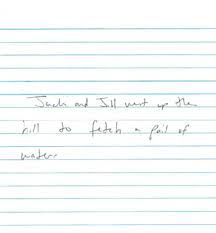 Jack and Jill went up the
hill to fetch a pail of
water.